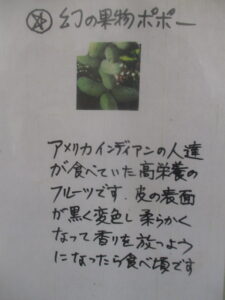 ☆幻の果物ポポー
アメリカインディアンの人達
が食べていた高栄養の
フルーツです。皮の表面
が黒く変色し柔らかく
なって香りを放つよう
になったら食べ頃です